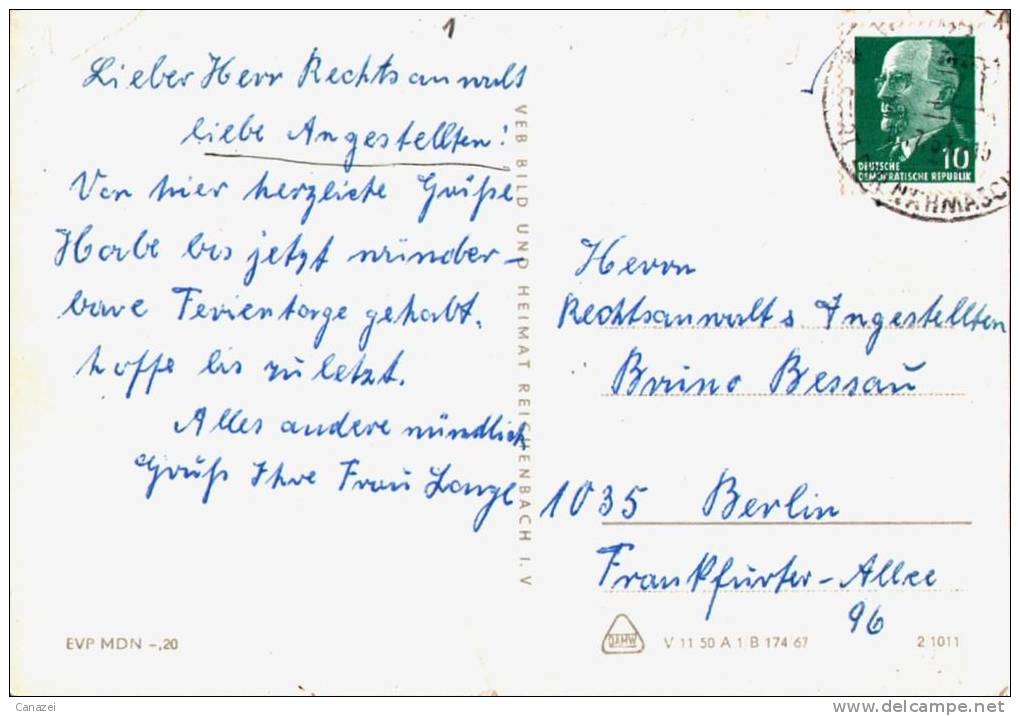 1
Lieber Herr Rechtsanwalt
liebe Angestellten!
Von hier herzliche Grüße
Habe bis jetzt wunder-
bare Ferientage gehabt,
hoffe bis zuletzt.
Alles andere mündlich
Gruß Ihre Frau Lange
VEB BILD UND HEIMAT REICHENBACH I. V
EVP MDN -,20
DEUTSCHE 10
DEMOKRATISCHE REPUBLIK
NÄHMASCH
Herrn
Rechtsanwalt & Angestellten
Bruno Bessau
1035 Berlin
Frankfurter-Allee
96
DAMW V 11 50 A 1 B 174 67 2 1011
Canazei
www.delcampe.net